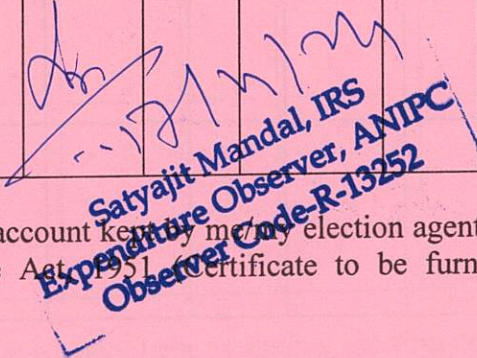 Satyajit Mandal, IRS
Expenditure Observer, ANIPC
Observer Code-R-13252
account kept by me/my election agent
Act, 1951 (Certificate to be furn